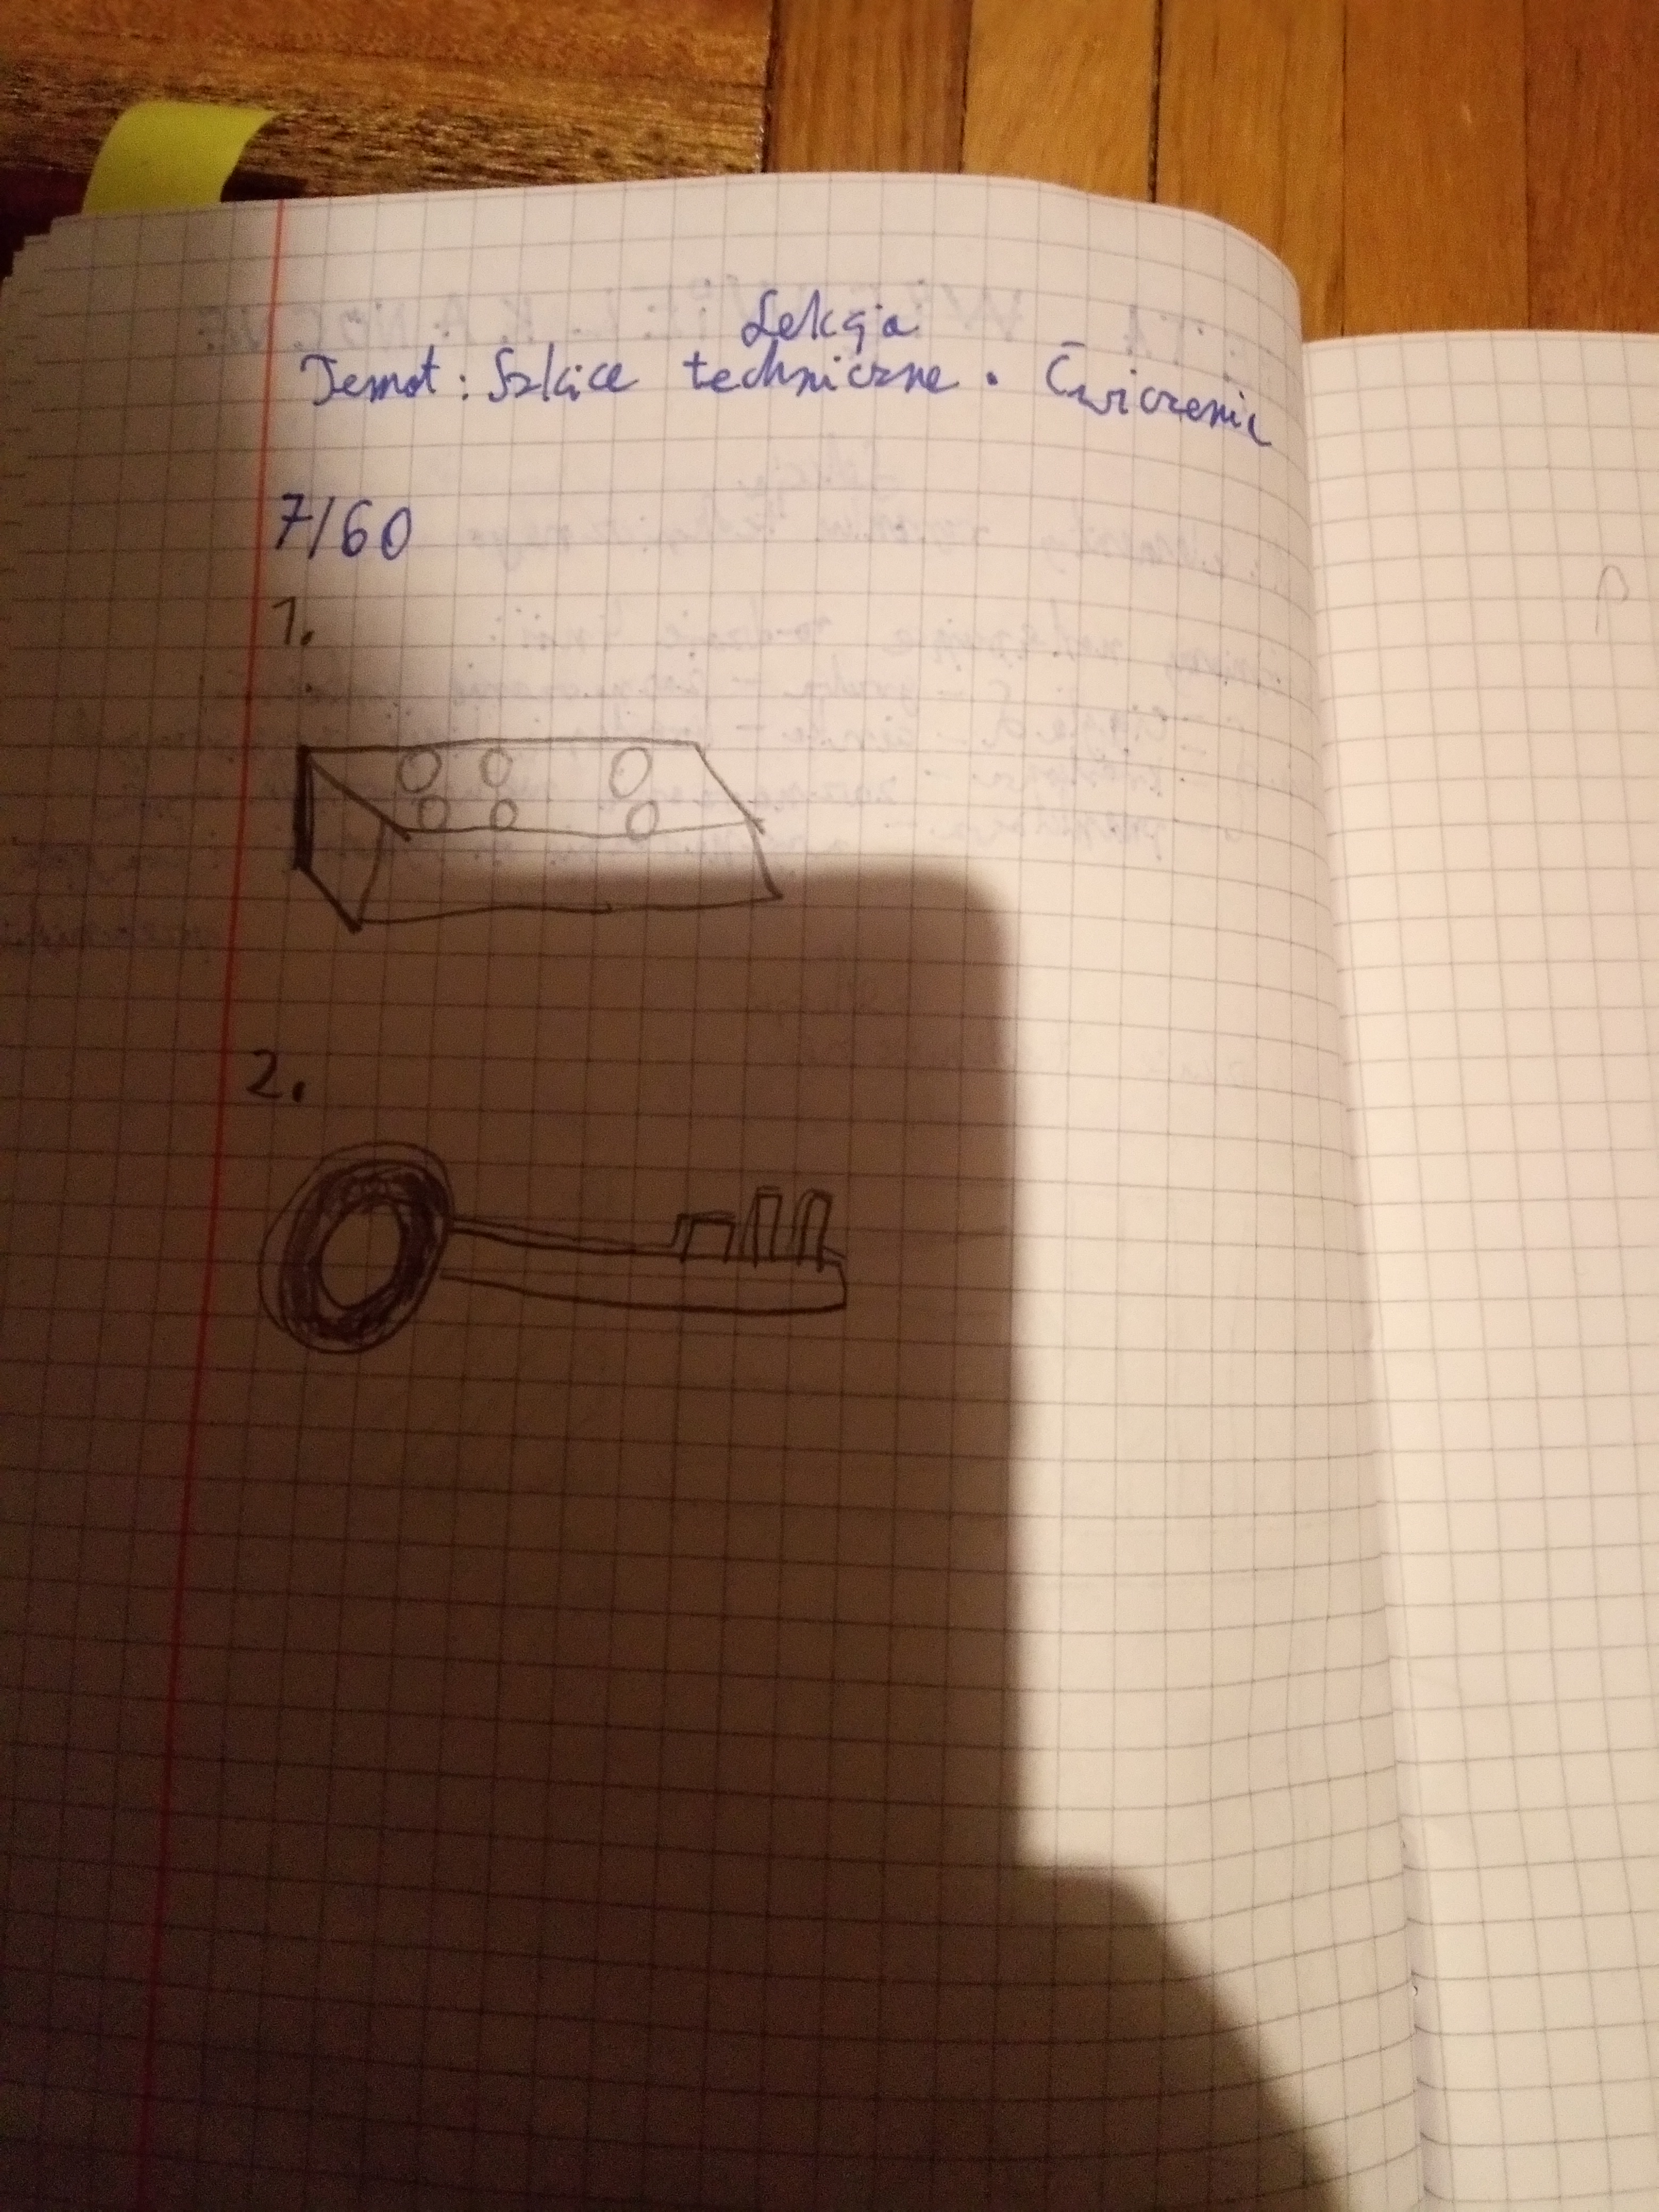 Lekcja
Temat: Szkice techniczne. Ćwiczenia
7/60
1.
2.